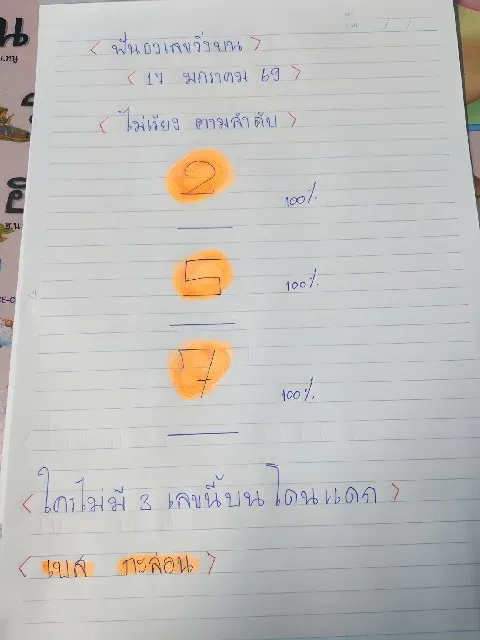 < ฟันธงเลขวิ่งบน >
< 17 มกราคม 69 >
< ไม่เรียง ตามลำดับ >
2
100%
5
100%
7
100%
< ใครไม่มี 3 เลขนี้บนโดนแดก >
< เบส กะล่อน >